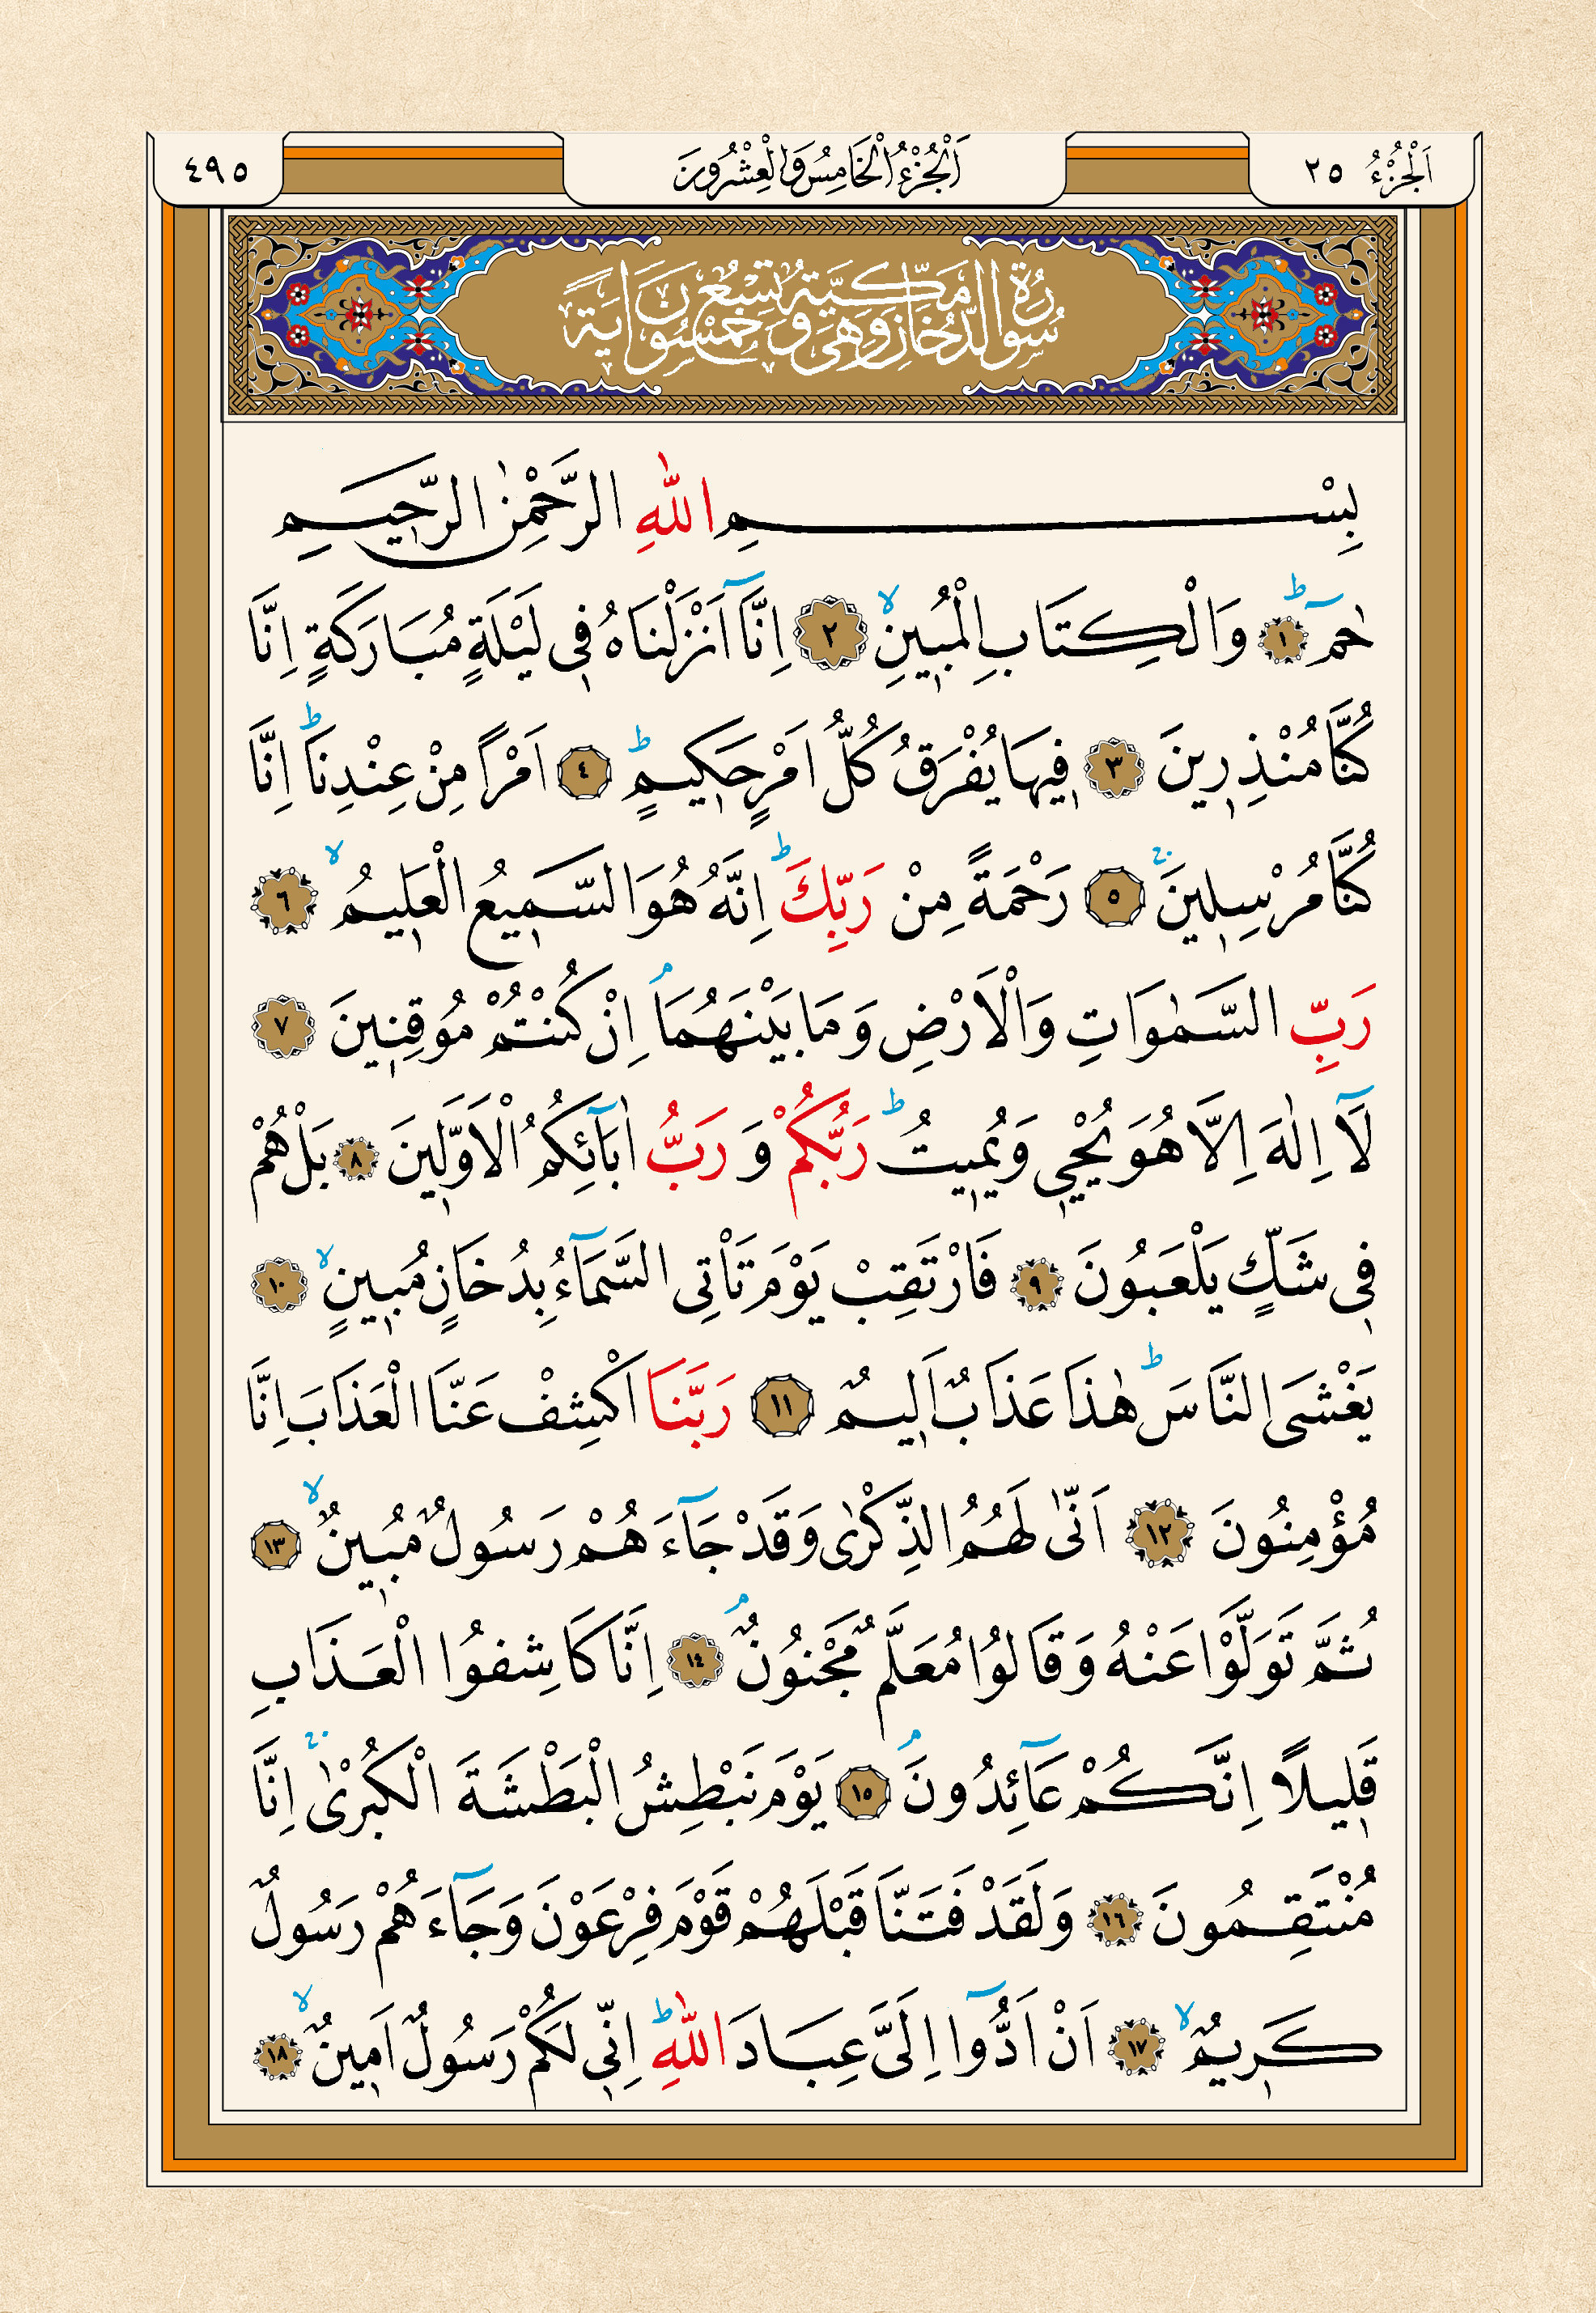 اَلْجُزْءُ ٢٥
اَلْجُزْءُ الْخَامِسُ وَالْعِشْرُونَ
٤٩٥
سُورَةُ الدُّخَانِ مَكِّيَّةٌ وَهِيَ تِسْعٌ وَخَمْسُونَ اٰيَةً
بِسْمِ اللّٰهِ الرَّحْمٰنِ الرَّحِيمِ
حٰمٓ ۜ ﴿١﴾ وَالْكِتَابِ الْمُبِينِ ۙ ﴿٢﴾ اِنَّٓا اَنْزَلْنَاهُ فِي لَيْلَةٍ مُبَارَكَةٍ اِنَّا
كُنَّا مُنْذِرِينَ ﴿٣﴾ فِيهَا يُفْرَقُ كُلُّ اَمْرٍ حَكِيمٍ ۜ ﴿٤﴾ اَمْرًا مِنْ عِنْدِنَا ۜ اِنَّا
كُنَّا مُرْسِلِينَ ۚ ﴿٥﴾ رَحْمَةً مِنْ رَبِّكَ ۜ اِنَّهُ هُوَ السَّمِيعُ الْعَلِيمُ ۙ ﴿٦﴾
رَبِّ السَّمٰوَاتِ وَالْاَرْضِ وَمَا بَيْنَهُمَا ۢ اِنْ كُنْتُمْ مُوقِنِينَ ﴿٧﴾
لَٓا اِلٰهَ اِلَّا هُوَ يُحْيِي وَيُمِيتُ ۜ رَبُّكُمْ وَ رَبُّ اٰبَٓائِكُمُ الْاَوَّلِينَ ﴿٨﴾ بَلْ هُمْ
فِي شَكٍّ يَلْعَبُونَ ﴿٩﴾ فَارْتَقِبْ يَوْمَ تَاْتِي السَّمَٓاءُ بِدُخَانٍ مُبِينٍ ۙ ﴿١٠﴾
يَغْشَى النَّاسَ ۜ هٰذَا عَذَابٌ اَلِيمٌ ﴿١١﴾ رَبَّنَا اكْشِفْ عَنَّا الْعَذَابَ اِنَّا
مُؤْمِنُونَ ﴿١٢﴾ اَنّٰى لَهُمُ الذِّكْرٰى وَقَدْ جَٓاءَهُمْ رَسُولٌ مُبِينٌ ۙ ﴿١٣﴾
ثُمَّ تَوَلَّوْا عَنْهُ وَقَالُوا مُعَلَّمٌ مَجْنُونٌ ۢ ﴿١٤﴾ اِنَّا كَاشِفُوا الْعَذَابِ
قَلِيلًا اِنَّكُمْ عَٓائِدُونَ ۢ ﴿١٥﴾ يَوْمَ نَبْطِشُ الْبَطْشَةَ الْكُبْرٰى ۚ اِنَّا
مُنْتَقِمُونَ ﴿١٦﴾ وَلَقَدْ فَتَنَّا قَبْلَهُمْ قَوْمَ فِرْعَوْنَ وَجَٓاءَهُمْ رَسُولٌ
كَرِيمٌ ۙ ﴿١٧﴾ اَنْ اَدُّٓوا اِلَيَّ عِبَادَ اللّٰهِ ۜ اِنِّي لَكُمْ رَسُولٌ اَمِينٌ ۙ ﴿١٨﴾